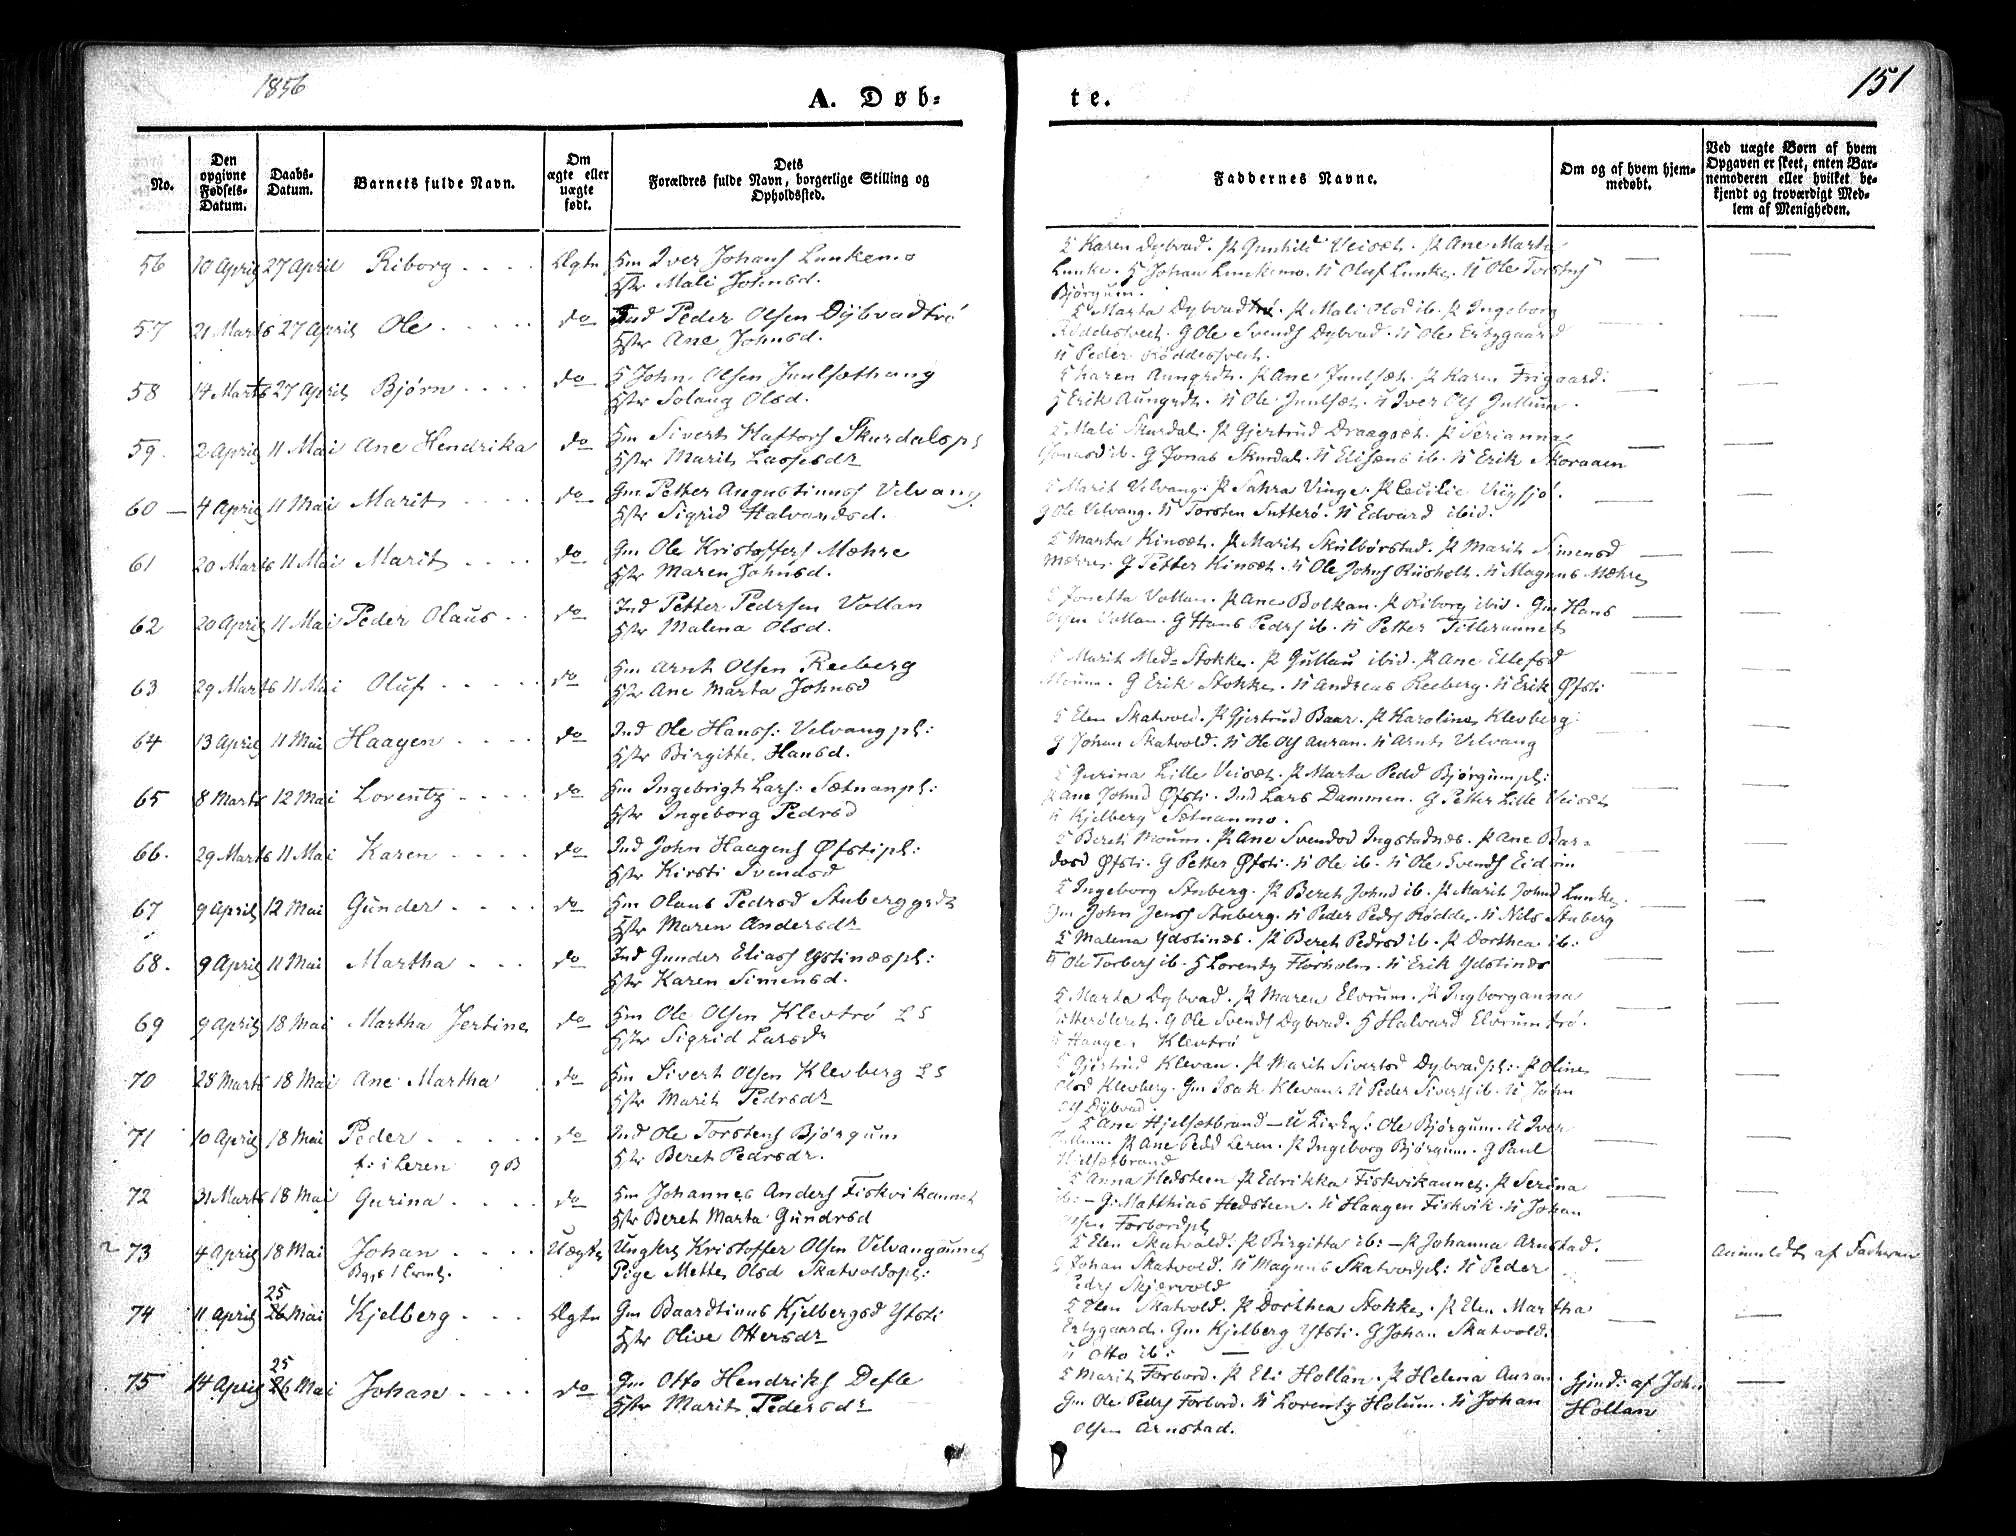 1856
151
A. Døb=
te.
No.
Den opgivne Fødsels-Datum.
Daabs-Datum.
Barnets fulde Navn.
Om ægte eller uægte født.
Dets Forældres fulde Navn, borgerlige Stilling og Opholdssted.
Faddernes Navne.
Om og af hvem hjemmedøbt.
Ved uægte Børn af hvem Opgaven er skeet, enten Barnemoderen eller hvilket bekjendt og troværdigt Medlem af Menigheden.
56 10 April 27 April Riborg Ægte Hm Iver Johans Lunkemo
Hstr Mali Johnsd.
Karen Dybvad. P Gunhild Veisæt. P Ane Marta
Lunke. G Johan Lunkemo. U Oluf Lunke. U Ole Torstens
Bjørgum.
57 21 Marts 27 April Ole do Ind Peder Olsen Dybvadtrø
Hstr Ane Johnsd.
Marta Dybvad. P Mali Olsd ib. P Ingeborg
G Ole Svends Dybvad. U Ole Ertzgaard
U Peder
58 14 Marts 27 April Bjørn do John Olsen Juulsæthaug
Hstr Solaug Olsd.
Karen P Ane Juulsæt. P Karen Frigaard.
Erik U Ole Juulsæt. U Iver Ols Jullum.
59. 2 April 11 Mai Ane Hendrika do Hm Sivert Haftors Skurdalspl
Hstr Marit Lassesdr
Mali Skurdal. P Gjertrud Draagset. P Serianna
Jonasd ib. G Jonas Skurdal. U Elisæus ib. U Erik Skoraaen
60 4 April 11 Mai Marit do Gm Petter Augustinus Velvang.
Hstr Sigrid Halvardsd.
Marit Velvang. P Sahra Vinge. P Cecilie
G Ole Velvang. U Torsten Sutterø. U Edvard ibid.
61 20 Marts 11 Mai Marit do Gm Ole Kristoffers Mæhre
Hstr Maren Johnsd.
Marta Kinset. P Marit Skulbørstad. P Marit Simensd
Mærre. G Petter Kinset. U Ole Johns Riisholt. U Magnus Mæhre
62 20 April 11 Mai Peder Olaus do Ind Petter Pedrsen Vollan
Hstr Malena Olsd.
Jonetta Vollan. P Ane Bolkan. P Riborg ibid. Gm Hans
Olsen Vollan. G Hans Pedrs ib. U Petter Tilleraunet
63 29 Marts 11 Mai Oluf do Hm Arnt Olsen Reeberg
Hstr Ane Marta Johnsd
Marit Med-Stokke. P Gullau ibid. P Ane Ellefsd
Moum. G Erik Stokke. U Andreas Reeberg. U Erik Øfsti
64 13 April 11 Mai Haagen do Ind Ole Hanss: Velvangpl:
Hstr Birgitte Hansd.
Elen Skatvold. P Gjertrud Baar. P Karoline Klevberg
G Johan Skatvold. U Ole Ols Auran. U Arnt Velvang
65 8 Marts 12 Mai Lorentz do Hm Ingebrigt Lars: Sætnanpl:
Hstr Ingeborg Pedrsd
Gurina Lille Veisæt. P Marta Pedd Bjørgumpl:
P Ane Johnd Øfsti. Ind Lars Dammen. G Petter Lille Veisæt
U Kjelberg Sætnanmo.
66. 29 Marts 11 Mai Karen do Ind John Haagens Øfstipl:
Hstr Kirsti Svendsd
Beret Moum. P Ane Svendsd Ingstadnæs. P Ane Bar-
dosd Øfsti. G Petter Øfsti. U Ole ib. U Ole Svends Eidum
67 9 April 12 Mai Gunder do Hm Olaus Pedrsd Stuberggrdt
Hstr Maren Andersdr
Ingeborg Stuberg. P Beret Johnd ib. P Marit Johnd Lunke.
Gm John Jenss Stuberg. U Peder Pedrs Rødde. U Nils Stuberg
68. 9 April 11 Mai Martha do Ind Gunder Eliass Ystinæspl:
Hstr Karen Simensd.
Malena Ydstinæs. P Beret Pedrsd ib. P Dorthea ib:
Ole Torbers ib. G Lorentz Florholm. U Erik Ydstinæs
69 9 April 18 Mai Martha Jertine do Hm Ole Olsen Klevtrø LS
Hstr Sigrid Larsdr
Marta Dybvad. P Maren Elvrum. P Ingborganna
G Ole Svends Dybvad. G Halvard Elvrumtrø.
U Haagen Klevtrø
70 25 Marts 18 Mai Ane Martha do Hm Sivert Olsen Klevberg LS
Hstr Marit Pedrsdr
Gjertrud Klevan. P Marit Sivertsd Dybvadpl: P Oline
Olsd Klevberg. Gm Isak Klevan. U Peder Siverts ib. U John
Ols Dybvad.
71 10 April 18 Mai Peder do Ind Ole Torstens Bjørgum
f: i Leren g B Hstr Beret Pedrsdr.
Ane Hjelsetbrand U Ole Bjørgum. U Iver
Jullum. P Ane Pedd Leren. P Ingeborg Bjørgum. G Paul
Hjelsetbrand
72 31 Marts 18 Mai Gurina do Hm Johannes Anders Fiskvikaunet
Hstr Beret Marta Gundrsd
Anna Hedsteen P Edrikka Fiskvikaunet. P Serina
ib: G. Matthias Hedsteen. U Haagen Fiskvik. U Johan
Olsen Forbordpl
73 4 April 18 Mai Johan Uægte Ungkrl Kristoffer Olsen Velvangaunet
Pige Mette Olsd Skatvoldspl:
Elen Skatvold. P Birgitta ib: P Johanna Arnstad.
G Johan Skatvold. U Magnus Skatvoldpl: U Peder
Pedrs Skjervold
Anmeldt af Faderen
74 11 April 25 26 Mai Kjelberg Ægte Gm Baardtinus Kjelbergsd Ystti
Hstr Olive Ottersdr
Elen Skatvold. P Dorthea Stokke. P Elen Martha
Ertzgaard. Gm Kjelberg Ystti. G Johan Skatvold.
U Otto ib:
75 14 April 25 26 Mai Johan do Gm Otto Hendriks Defle
Hstr Marit Pedersdr
Marit Forbord. P Eli Hollan. P Helena Auran.
Gm Ole Pedrs Forbord. U Lorentz Holum. U Johan
Olsen Arnstad.
Hjmd: af John
Hollan